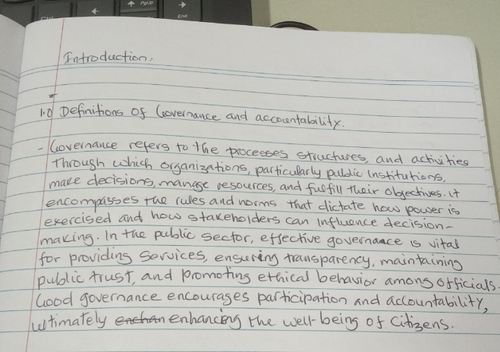 Introduction.
1.0 Definitions of Governance and accountability.
- Governance refers to the processes structures, and activities
Through which organizations, particularly public Institutions,
make decisions, manage resources, and fulfill their objectives. It
encompasses the rules and norms that dictate how power is
exercised and how stakeholders can influence decision-
making. In the public sector, effective governance is vital
for providing services, ensuring transparency, maintaining
public trust, and promoting ethical behavior among officials.
Good governance encourages participation and accountability,
ultimately enhancing the well-being of citizens.